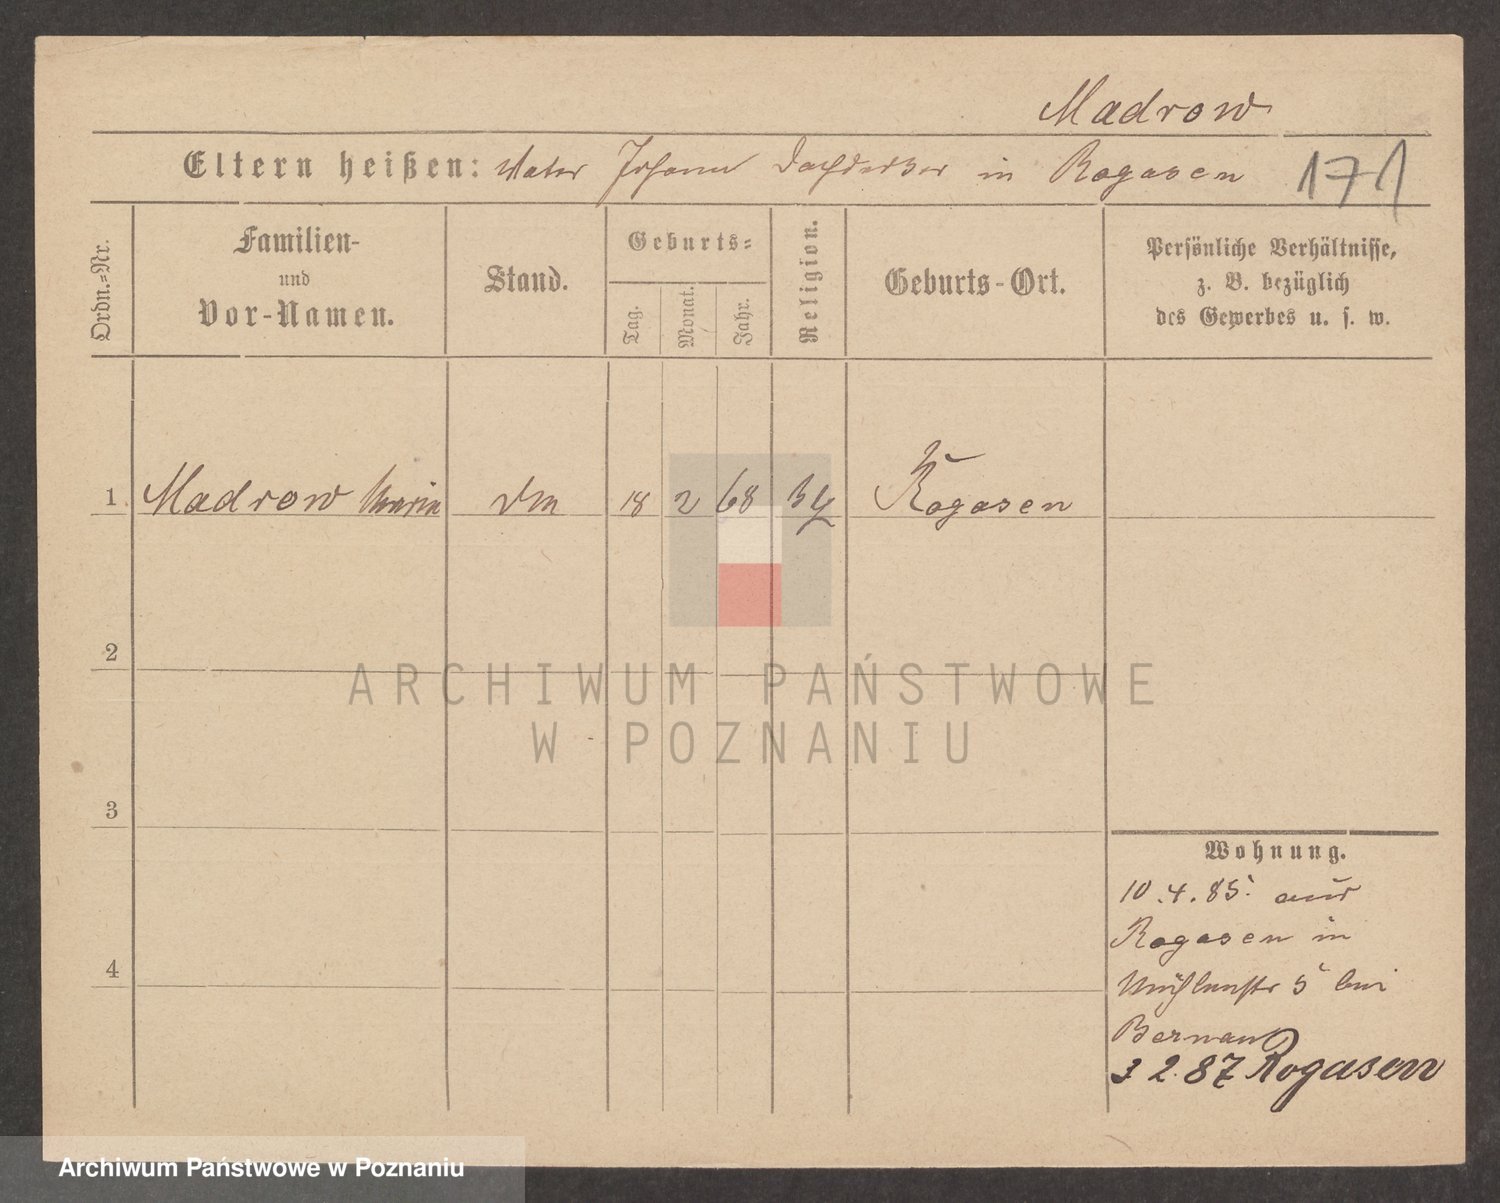 Madrow
Eltern heißen: Vater Johann Dachdecker in Rogasen 171
Ordn.-Nr.
Familien-
und
Vor-Namen.
Stand.
Geburts-
Tag.
Monat.
Jahr.
Religion.
Geburts-Ort.
Persönliche Verhältnisse,
z. B. bezüglich
des Gewerbes u. s. w.
1 Madrow Maria 18 2 68 Rogasen
2
3
4
Wohnung.
10.4.85. aus
Rogasen in
Mühlenstr 5 bei
Bernau
3 2 87 Rogasen
ARCHIWUM PAŃSTWOWE
W POZNANIU
Archiwum Państwowe w Poznaniu